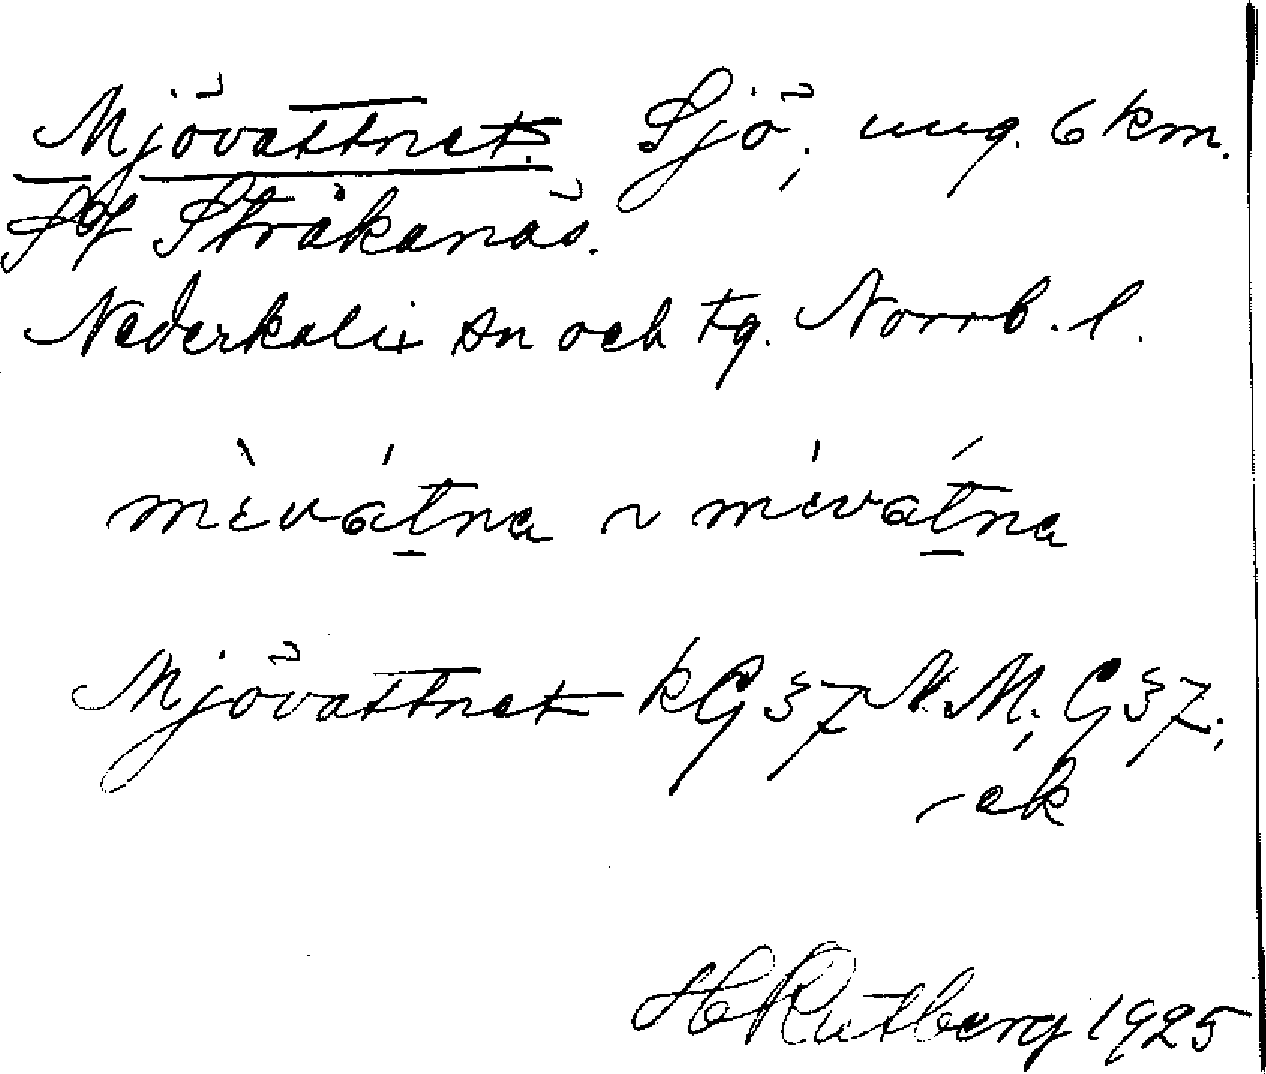 Mjövattnet. Sjö, ung. 6 km.
SV Stråkanäs.
Nederkalix sn och tg. Norrb. l.
mὲvátna ~ mὲvátna
Mjövattnet kG 37 N.M; G 37;
-ek
H Rutberg 1925